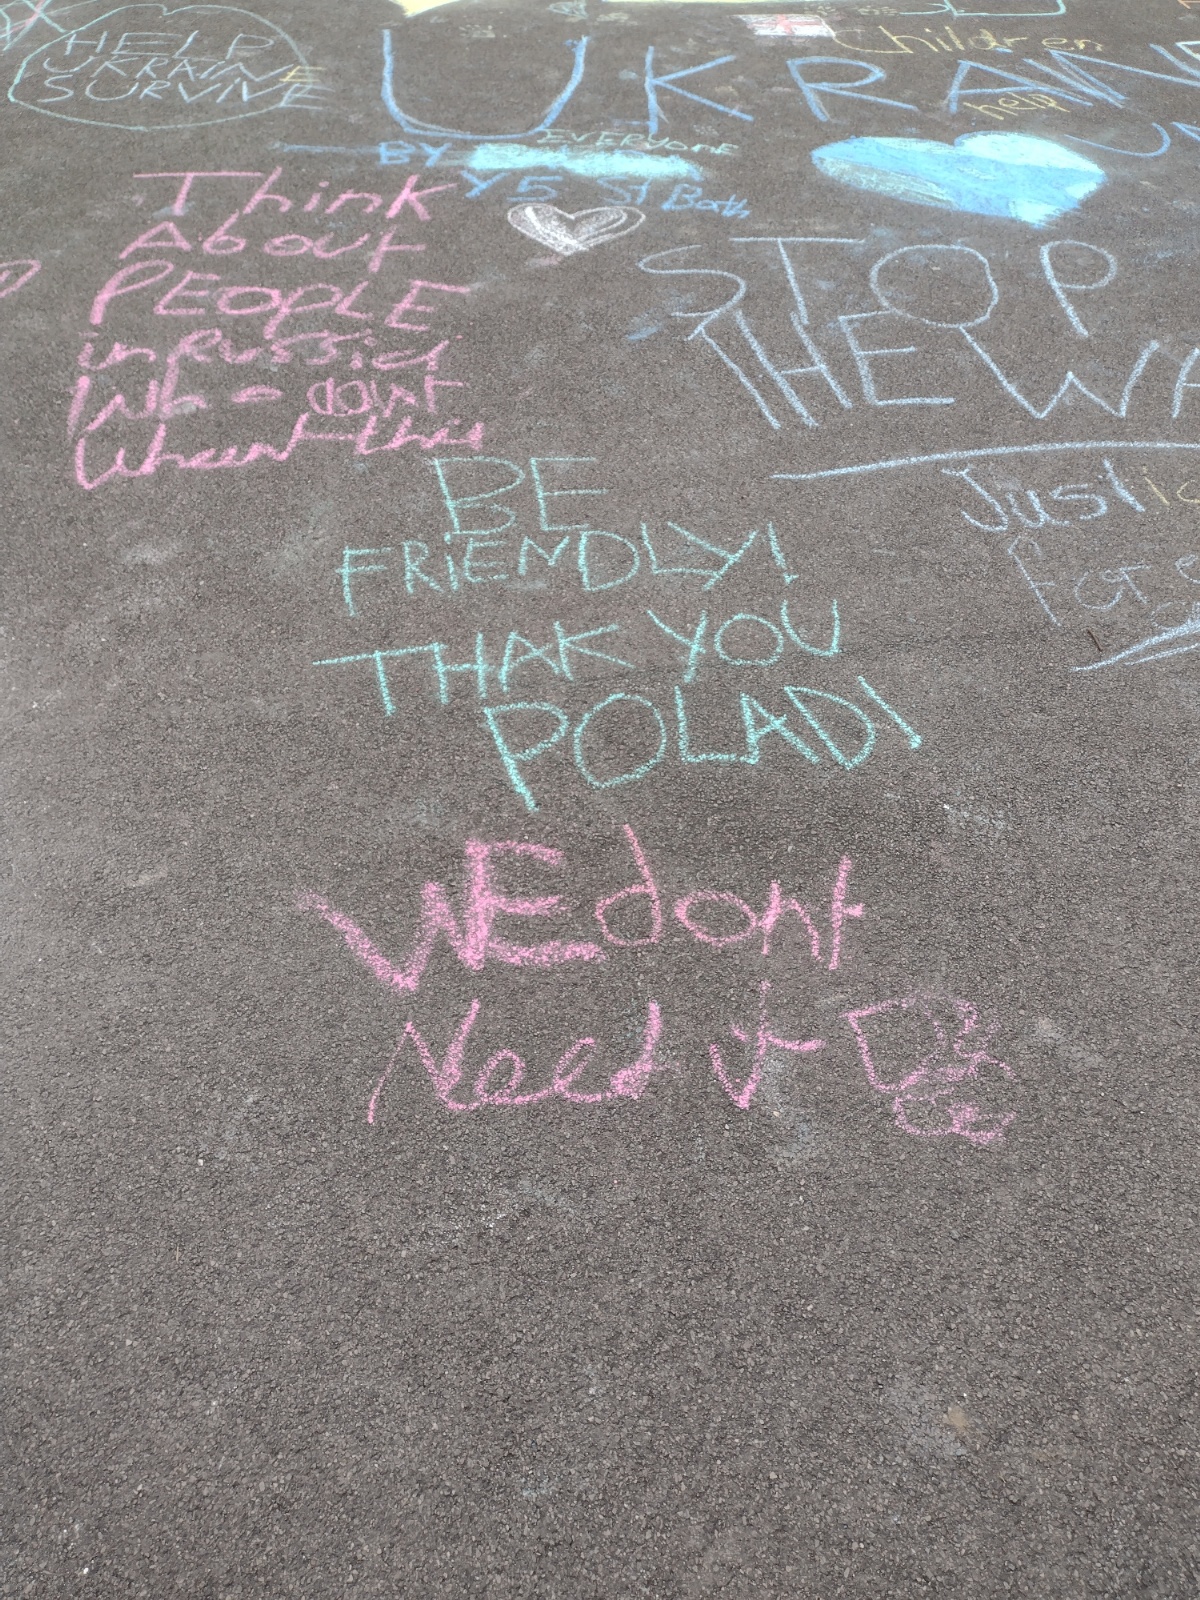 HELP
UKRAINE
SURVIVE
Children
UKRAINE
help
BY EVERYONE
Y5 St Bath
Think
About
PEOPLE
in Russia
Who dont
Whant this
STOP
THE WA
Just
for
BE
FRiENDLY!
THAK YOU
POLAD!
WE dont
Need it